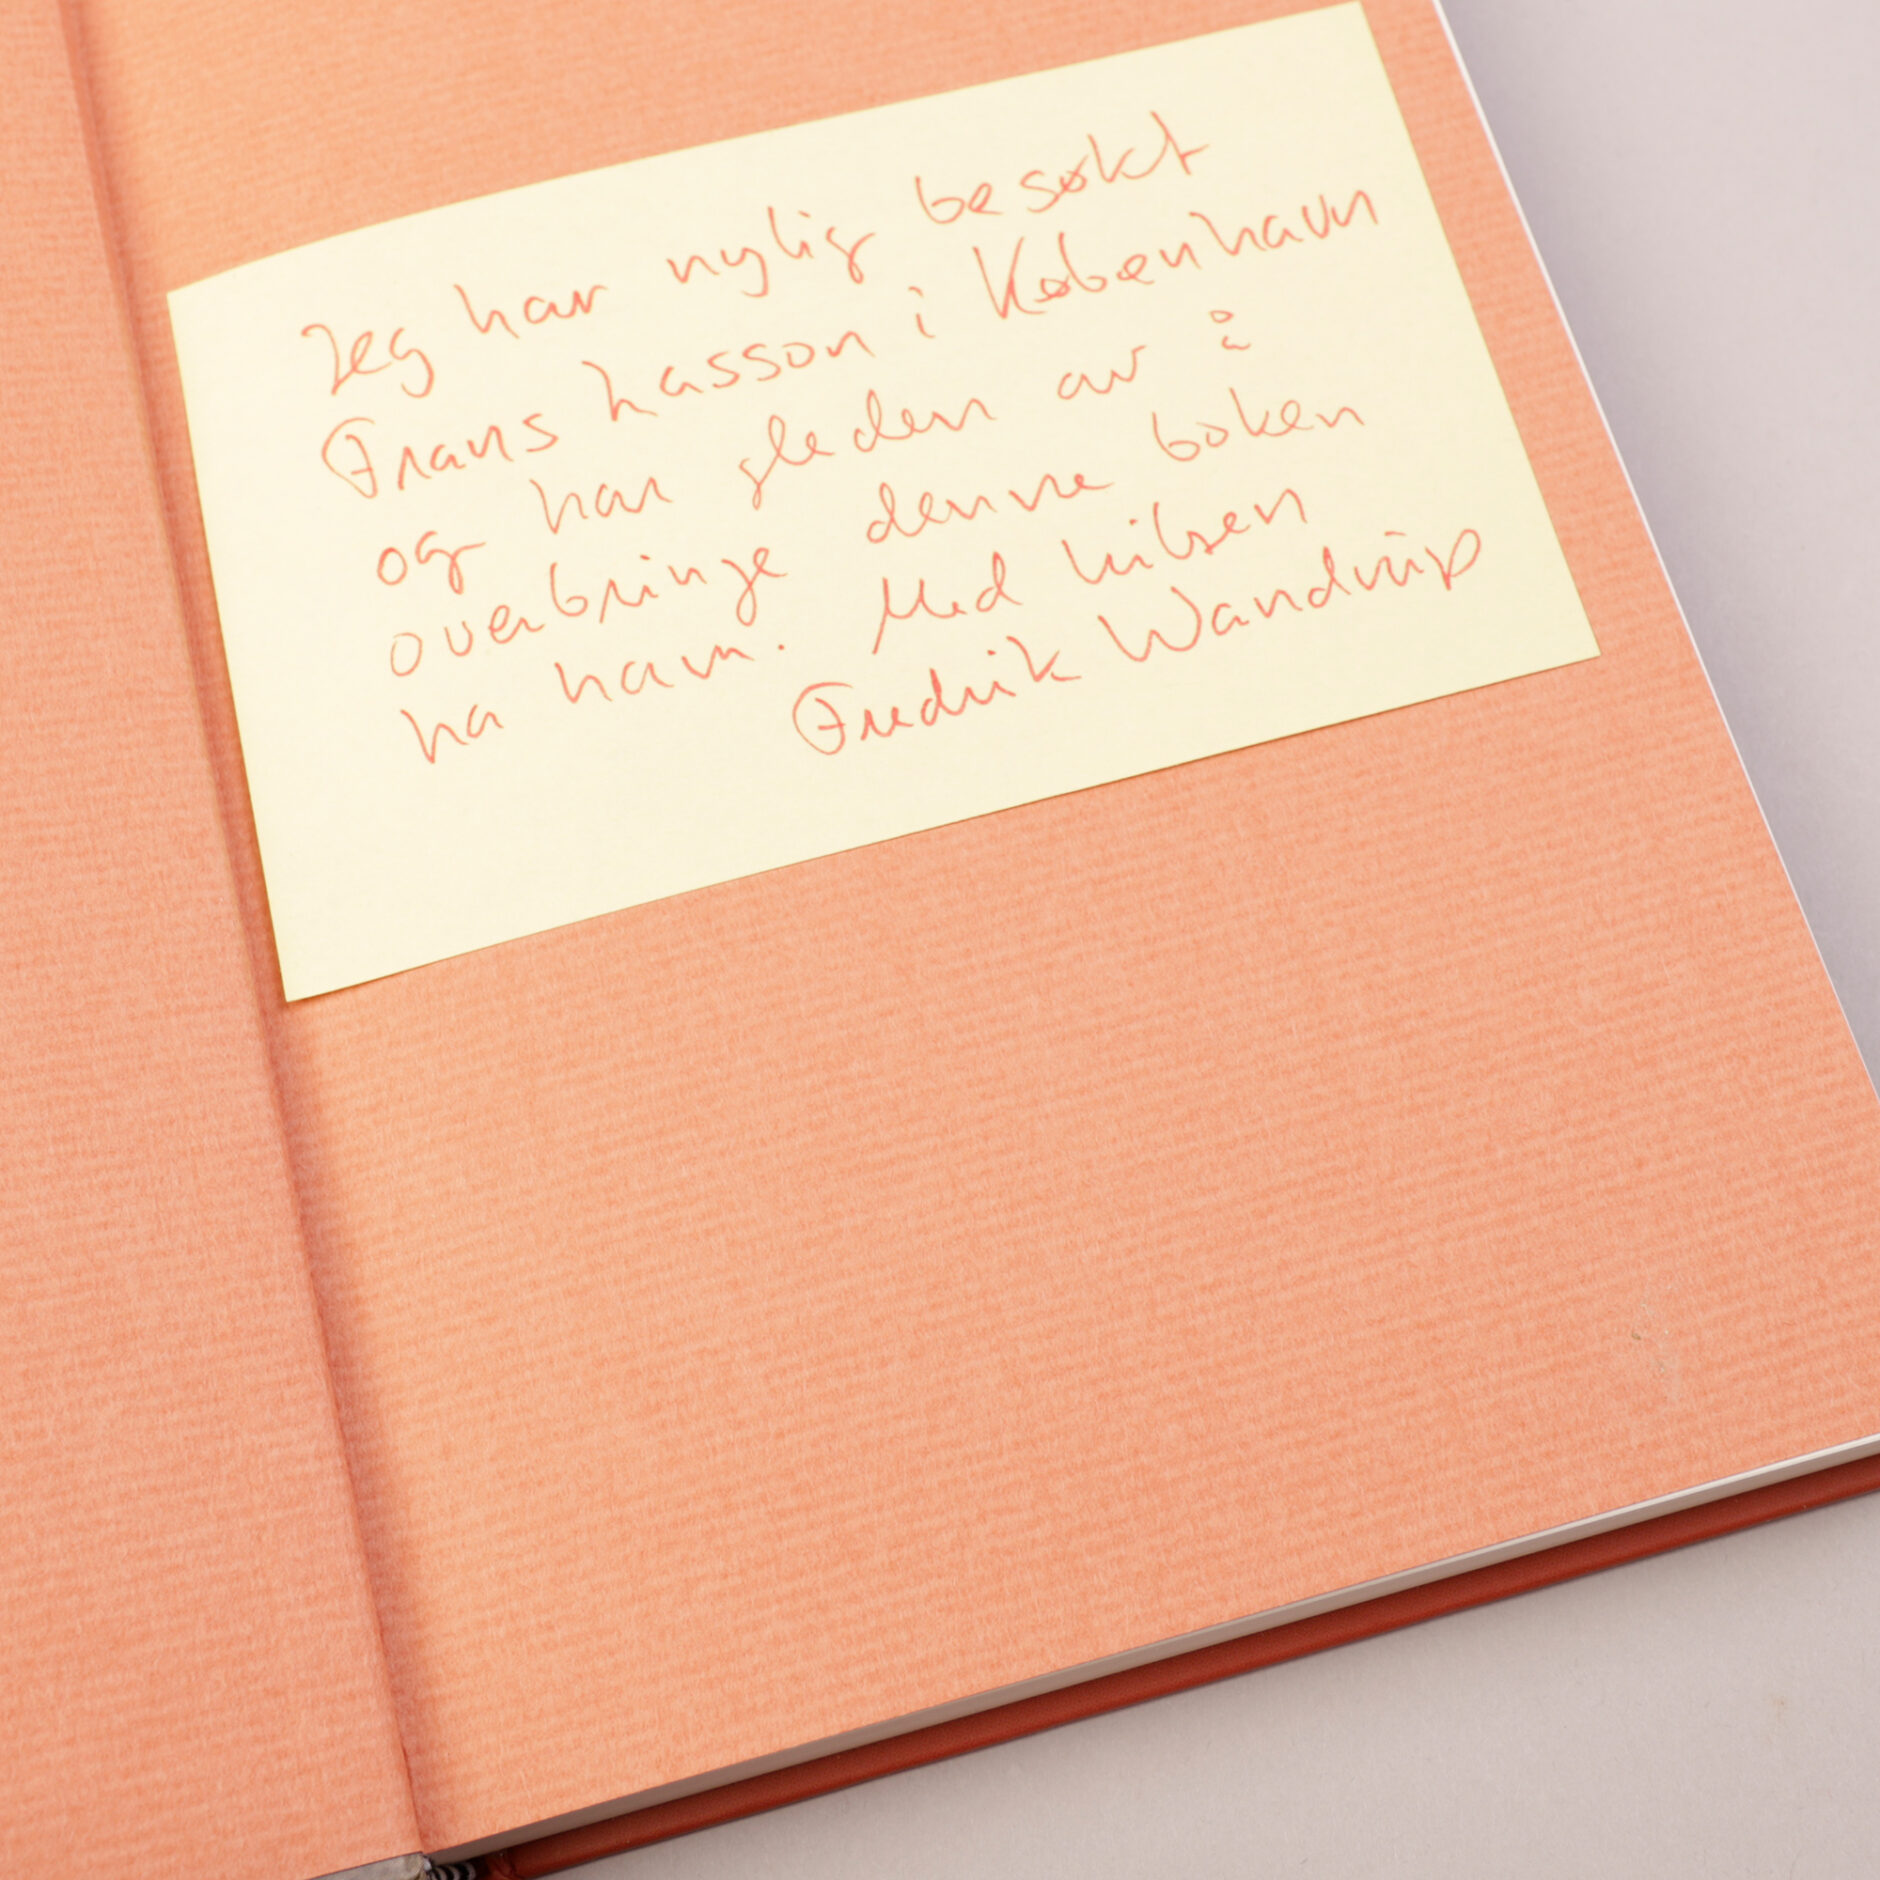 Jeg har nylig besøkt
Frans Lasson i København
og har gleden av å
overbringe denne boken
fra ham. Med hilsen
Fredrik Wandrup